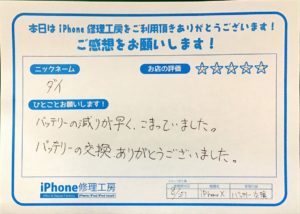 本日は iPhone 修理工房をご利用頂きありがとうございます!
ご感想をお願いします!
ニックネーム
お店の評価 ☆☆☆☆☆
ダイ
ひとことお願いします!
バッテリーの減りが早く、こまっていました。
バッテリーの交換ありがとうございました。
iPhone修理工房
iPhone X
バッテリー交換